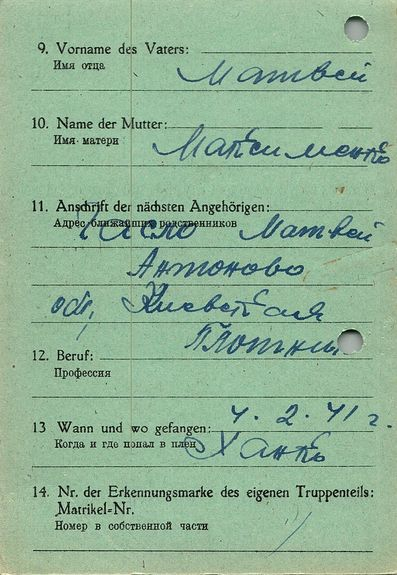 9. Vorname des Vaters:
Имя отца
Матвей
10. Name der Mutter:
Имя матери
Максименко
11. Anschrift der nächsten Angehörigen:
Адрес ближайших родственников
Матвей
Антоново
обл, Киевская
Плотник
12. Beruf:
Профессия
13 Wann und wo gefangen:
Когда и где попал в плен
4. 2. 41 г.
Ханко
14. Nr. der Erkennungsmarke des eigenen Truppenteils:
Matrikel=Nr.
Номер в собственной части